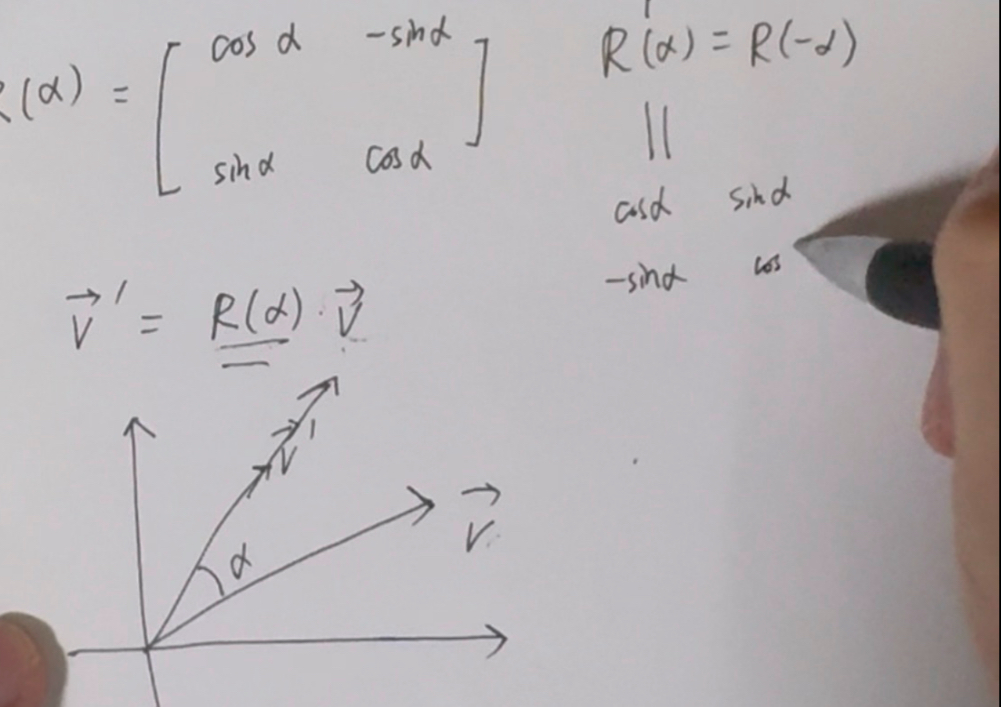 R(α) = [ cos α -sinα
sinα cosα ]
R(α) = R(-α)
||
cosα sinα
-sinα cos
v⃗' = R(α) · v⃗
v⃗'
α
v⃗